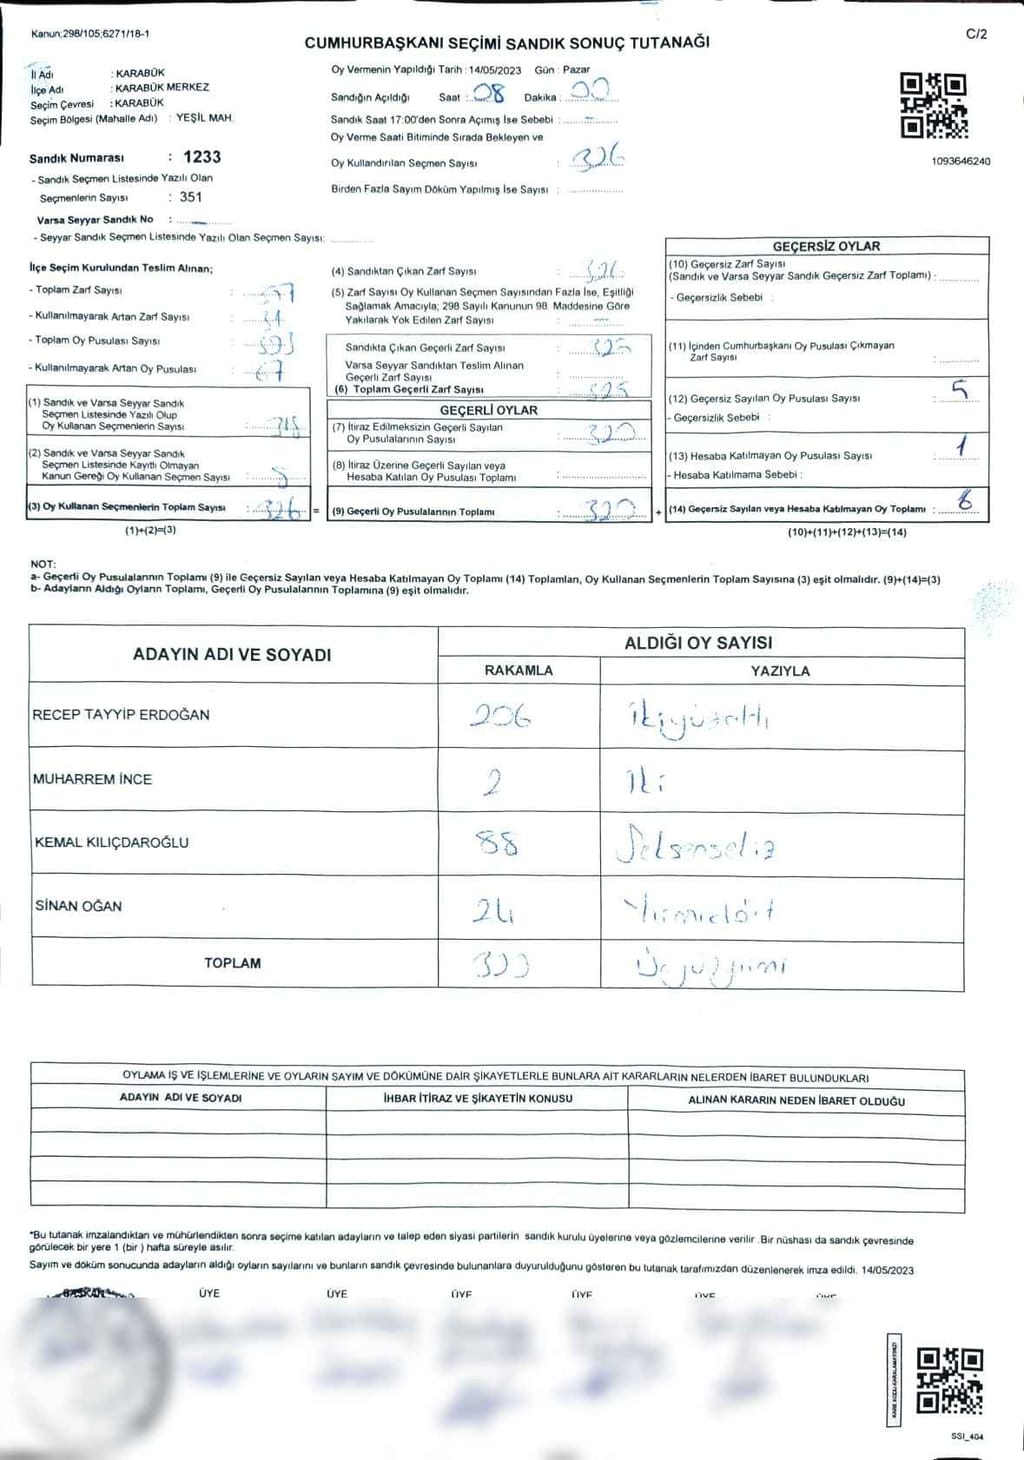 Kanun;298/105;6271/18-1
C/2
CUMHURBAŞKANI SEÇİMİ SANDIK SONUÇ TUTANAĞI
İl Adı : KARABÜK
İlçe Adı : KARABÜK MERKEZ
Seçim Çevresi : KARABÜK
Seçim Bölgesi (Mahalle Adı) : YEŞİL MAH.
Sandık Numarası : 1233
- Sandık Seçmen Listesinde Yazılı Olan
Seçmenlerin Sayısı : 351
Varsa Seyyar Sandık No :
- Seyyar Sandık Seçmen Listesinde Yazılı Olan Seçmen Sayısı:
Oy Vermenin Yapıldığı Tarih : 14/05/2023 Gün : Pazar
Sandığın Açıldığı Saat : 08 Dakika : 00
Sandık Saat 17:00'den Sonra Açımış İse Sebebi :
Oy Verme Saati Bitiminde Sırada Bekleyen ve
Oy Kullandırılan Seçmen Sayısı : 326
Birden Fazla Sayım Döküm Yapılmış İse Sayısı :
1093646240
İlçe Seçim Kurulundan Teslim Alınan;
- Toplam Zarf Sayısı :
- Kullanılmayarak Artan Zarf Sayısı :
- Toplam Oy Pusulası Sayısı : 393
- Kullanılmayarak Artan Oy Pusulası : 67
(1) Sandık ve Varsa Seyyar Sandık
Seçmen Listesinde Yazılı Olup
Oy Kullanan Seçmenlerin Sayısı :
(2) Sandık ve Varsa Seyyar Sandık
Seçmen Listesinde Kayıtlı Olmayan
Kanun Gereği Oy Kullanan Seçmen Sayısı :
(3) Oy Kullanan Seçmenlerin Toplam Sayısı : 326 =
(1)+(2)=(3)
(4) Sandıktan Çıkan Zarf Sayısı : 326
(5) Zarf Sayısı Oy Kullanan Seçmen Sayısından Fazla İse, Eşitliği
Sağlamak Amacıyla; 298 Sayılı Kanunun 98. Maddesine Göre
Yakılarak Yok Edilen Zarf Sayısı :
Sandıkta Çıkan Geçerli Zarf Sayısı : 325
Varsa Seyyar Sandıktan Teslim Alınan
Geçerli Zarf Sayısı :
(6) Toplam Geçerli Zarf Sayısı : 325
GEÇERLİ OYLAR
(7) İtiraz Edilmeksizin Geçerli Sayılan
Oy Pusulalarının Sayısı : 320
(8) İtiraz Üzerine Geçerli Sayılan veya
Hesaba Katılan Oy Pusulası Toplamı :
(9) Geçerli Oy Pusulalarının Toplamı : 320 +
GEÇERSİZ OYLAR
(10) Geçersiz Zarf Sayısı
(Sandık ve Varsa Seyyar Sandık Geçersiz Zarf Toplamı) :
- Geçersizlik Sebebi :
(11) İçinden Cumhurbaşkanı Oy Pusulası Çıkmayan
Zarf Sayısı :
(12) Geçersiz Sayılan Oy Pusulası Sayısı : 5
- Geçersizlik Sebebi :
(13) Hesaba Katılmayan Oy Pusulası Sayısı : 1
- Hesaba Katılmama Sebebi :
(14) Geçersiz Sayılan veya Hesaba Katılmayan Oy Toplamı : 6
(10)+(11)+(12)+(13)=(14)
NOT:
a- Geçerli Oy Pusulalarının Toplamı (9) ile Geçersiz Sayılan veya Hesaba Katılmayan Oy Toplamı (14) Toplamları, Oy Kullanan Seçmenlerin Toplam Sayısına (3) eşit olmalıdır. (9)+(14)=(3)
b- Adayların Aldığı Oyların Toplamı, Geçerli Oy Pusulalarının Toplamına (9) eşit olmalıdır.
ADAYIN ADI VE SOYADI
ALDIĞI OY SAYISI
RAKAMLA YAZIYLA
RECEP TAYYİP ERDOĞAN 206 ikiyüzaltı
MUHARREM İNCE 2 iki
KEMAL KILIÇDAROĞLU 88 Seksensekiz
SİNAN OĞAN 24 Yirmidört
TOPLAM 320 Üçyüzyirmi
OYLAMA İŞ VE İŞLEMLERİNE VE OYLARIN SAYIM VE DÖKÜMÜNE DAİR ŞİKAYETLERLE BUNLARA AİT KARARLARIN NELERDEN İBARET BULUNDUKLARI
ADAYIN ADI VE SOYADI İHBAR İTİRAZ VE ŞİKAYETİN KONUSU ALINAN KARARIN NEDEN İBARET OLDUĞU
*Bu tutanak imzalandıktan ve mühürlendikten sonra seçime katılan adayların ve talep eden siyasi partilerin sandık kurulu üyelerine veya gözlemcilerine verilir .Bir nüshası da sandık çevresinde
görülecek bir yere 1 (bir ) hafta süreyle asılır.
Sayım ve döküm sonucunda adayların aldığı oyların sayılarını ve bunların sandık çevresinde bulunanlara duyurulduğunu gösteren bu tutanak tarafımızdan düzenlenerek imza edildi. 14/05/2023
BAŞKAN ÜYE ÜYE ÜYE ÜYE ÜYE
KARE KODU KARALAMAYINIZ!
SSI_404